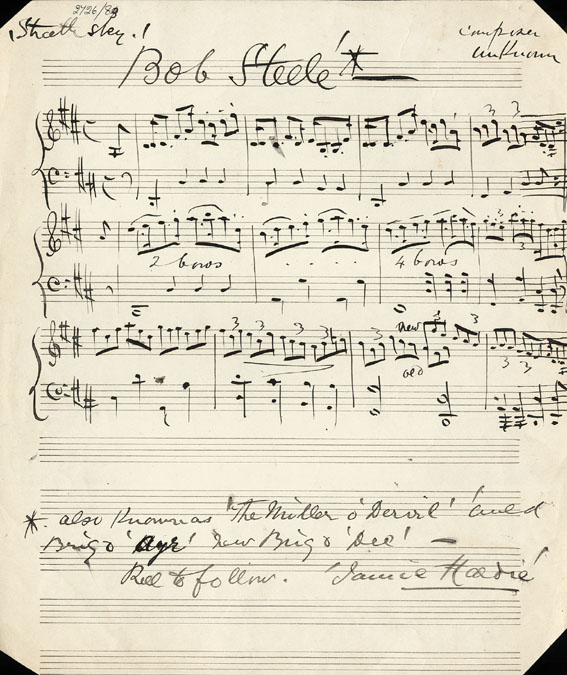 2726/82
'Strathspey.'
Composer
unknown
Bob Steele'*
3 3
2 bows
4 bows
3
3 3 3 3 3 new 3 3
old
3 3
*. also Known as 'The Miller o' Dervil' 'auld
Brig o' Ayr' 'New Brig o' Dee' —
Reel to follow. 'Jamie Hardie'